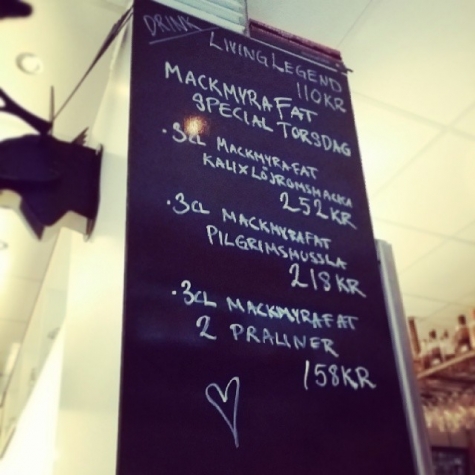 DRINK
LIVING LEGEND
110KR
MACKMYRA FAT
SPECIAL TORSDAG
·3CL MACKMYRAFAT
KALIXLÖJROMSMACKA
252KR
·3CL MACKMYRAFAT
PILGRIMSMUSSLA
218KR
·3CL MACKMYRAFAT
2 PRALINER
158KR